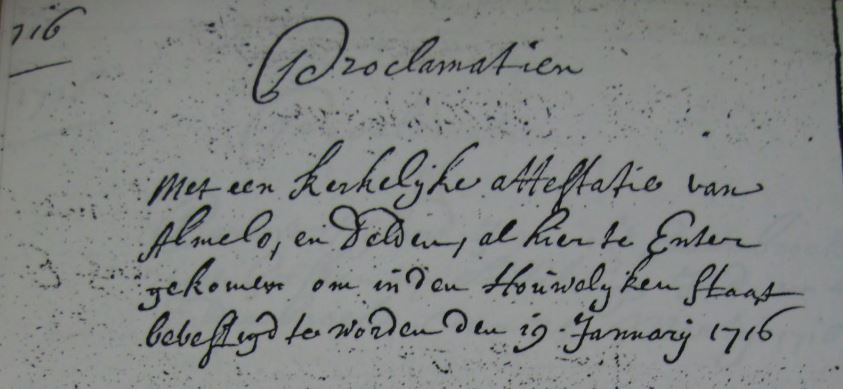 716
Proclamatien
Met een kerkelijke attestatie van
Almelo, en Delden, al hier te Enter
gekomen om in den Houwelyken staat
bevestigd te worden den 19. Januarij 1716